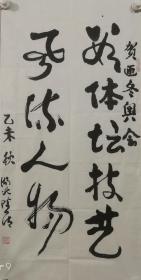 贺画冬奥会
体坛技艺
风流人物
乙未秋